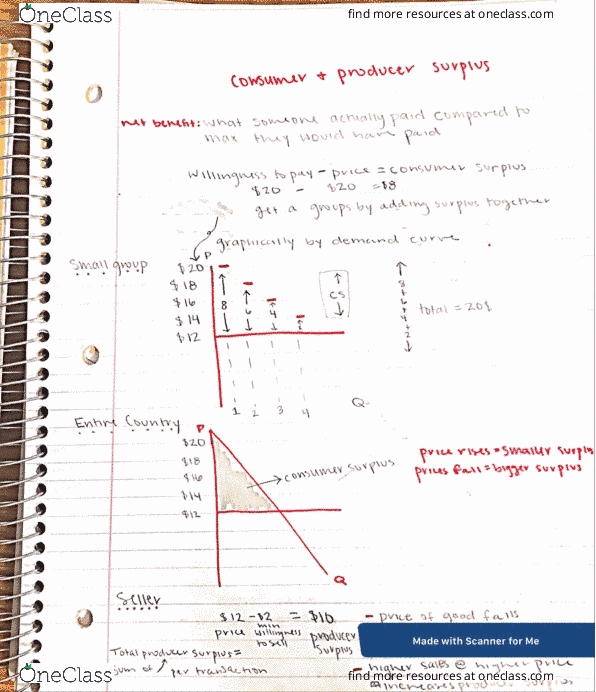 OneClass
find more resources at oneclass.com
consumer + producer surplus
net benefit: what someone actually paid compared to
max they would have paid
willingness to pay - price = consumer surplus
$20 - $20 = $8
get a groups by adding surplus together
graphically by demand curve
Small group
P
$20
$18
$16
$14
$12
8
6
4
2
CS
8+6+4+2
total = 20$
1 2 3 4
Q
Entire Country
P
$20
$18
$16
$14
$12
consumer surplus
price rises = smaller surplus
prices fall = bigger surplus
Q
Seller
$12 - $2 = $10
price min willingness to sell producer surplus
- price of good falls
Total producer surplus =
sum of per transaction
Made with Scanner for Me
- higher sales @ higher price
increases
surplus
OneClass
find more resources at oneclass.com